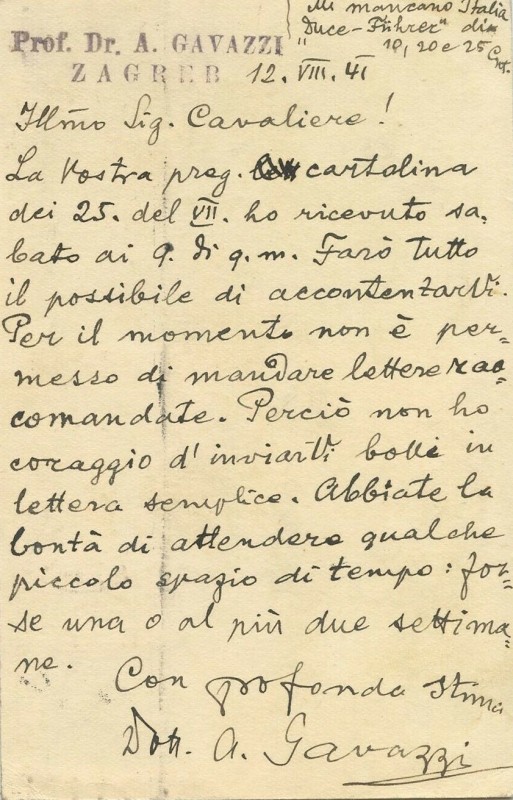 Mi mancano Italia
"Duce-Führer" di
10, 20 e 25 Cnt.
Prof. Dr. A. GAVAZZI
ZAGREB 12. VIII. 41
Illmo Sig. Cavaliere!
La Vostra preg. cartolina
dei 25. del VII. ho ricevuto sa-
bato ai 9. di q. m. Farò tutto
il possibile di accontentarVi.
Per il momento non è per-
messo di mandare lettere rac-
comandate. Perciò non ho
coraggio d'inviarVi bolli in
lettera semplice. Abbiate la
bontà di attendere qualche
piccolo spazio di tempo: for-
se una o al più due settima-
ne.
Con profonda stima
Dott. A. Gavazzi